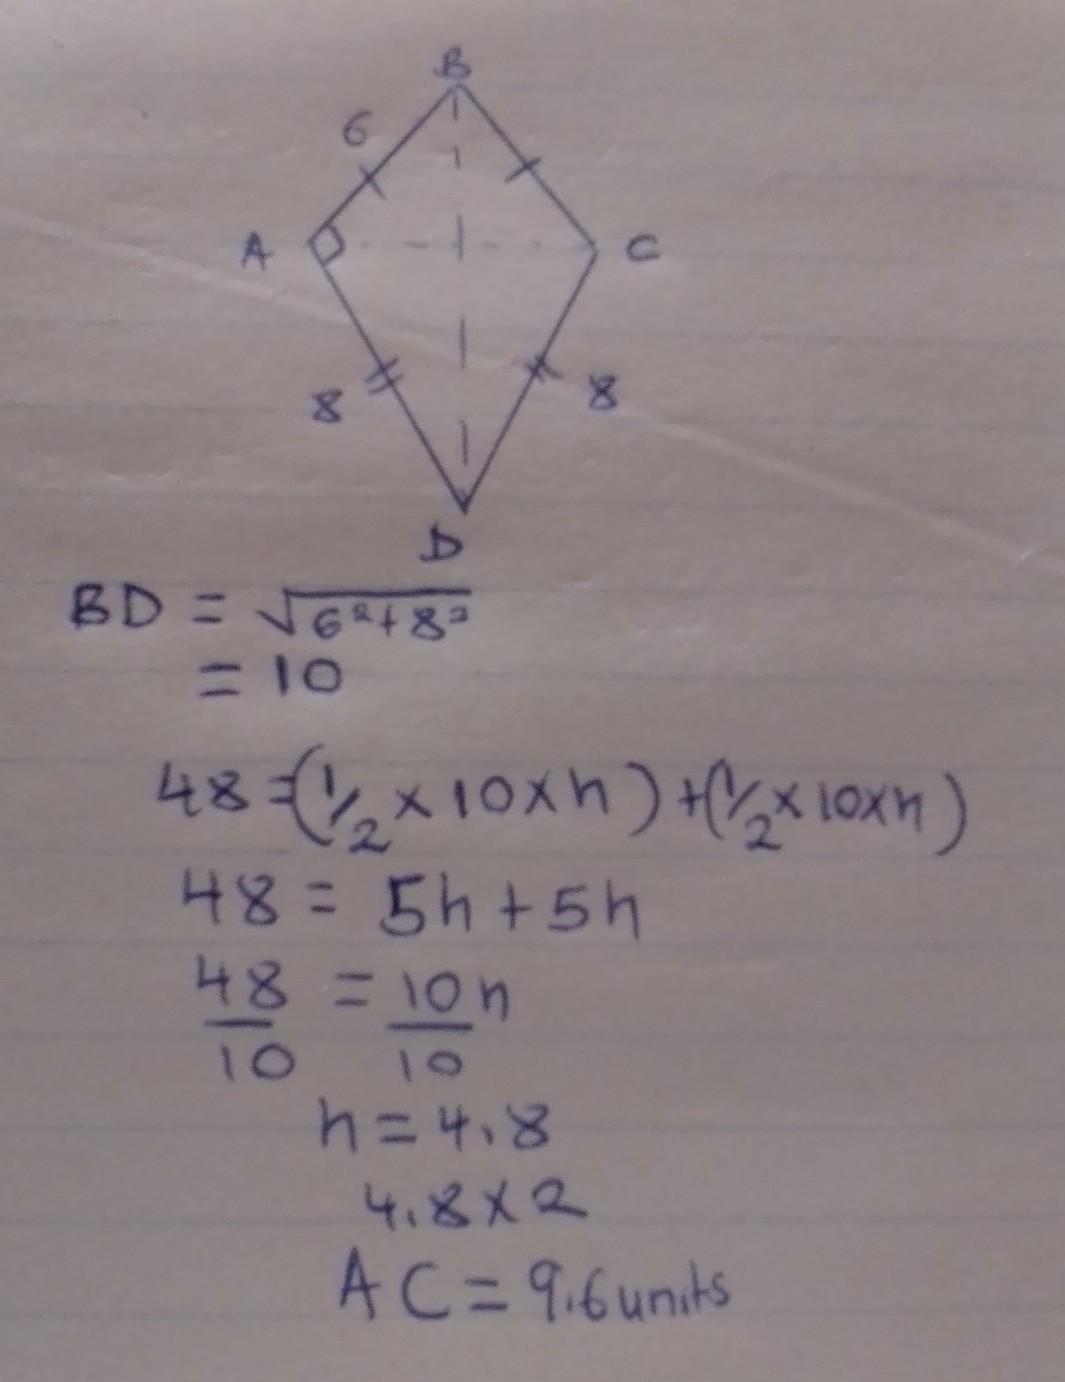 B
6
A
C
8
8
D
BD = √6²+8²
= 10
48 = (1/2 × 10 × h) + (1/2 × 10 × h)
48 = 5h + 5h
48/10 = 10h/10
h = 4.8
4.8 × 2
AC = 9.6 units